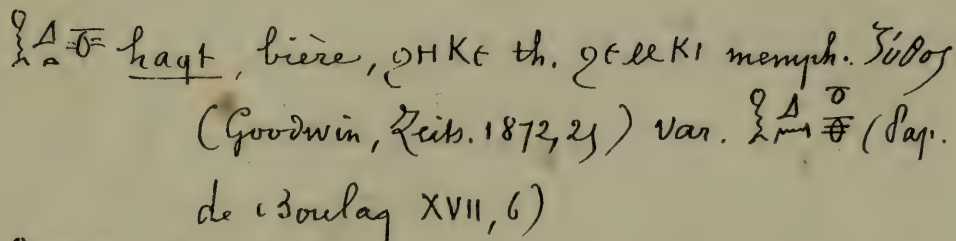 𓎛𓈎𓏏𓏊 haqt, bière, ϩⲏⲕⲉ th. ϩⲉⲙⲕⲓ memph. ζύθος
(Goodwin, Zeits. 1872, 25) var. (Pap.
de Boulaq XVII, 6)